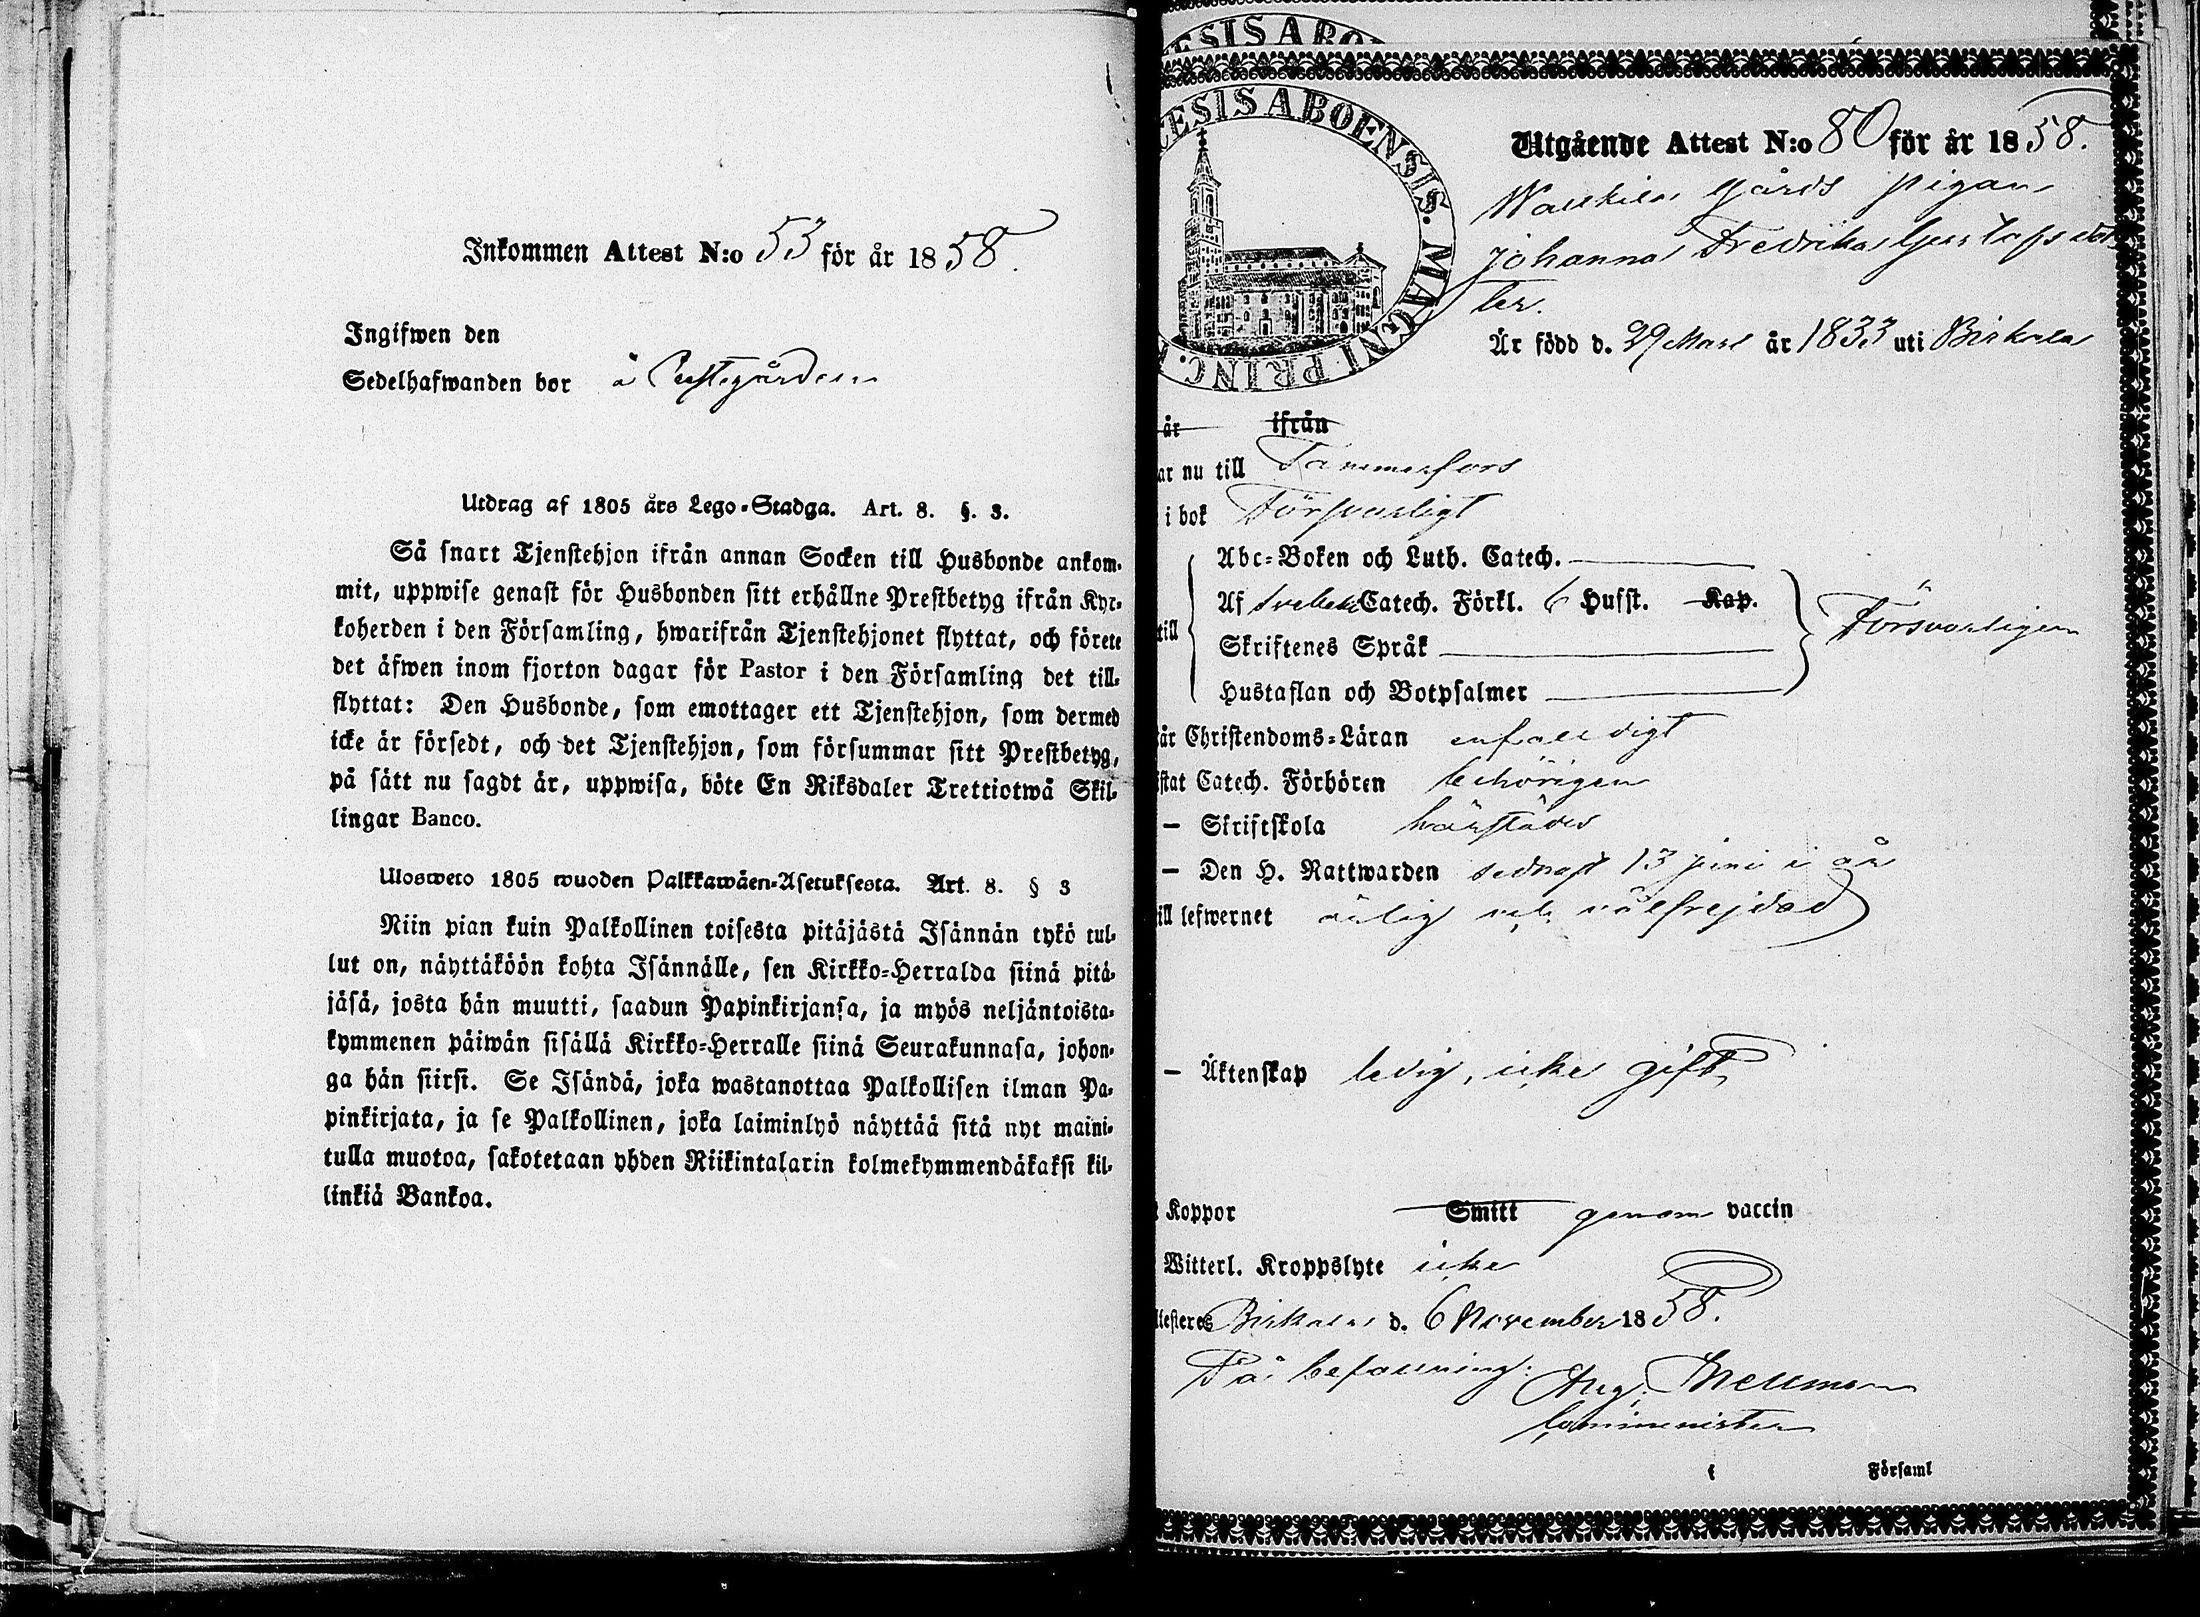 Inkommen Attest N:o 53 för år 1858.
Ingifwen den
Sedelhafwanden bor å Prestegården
Utdrag af 1805 års Lego-Stadga. Art. 8. §. 3.
Så snart Tjenstehjon ifrån annan Socken till Husbonde ankom-
mit, uppwise genast för Husbonden sitt erhållne Prestbetyg ifrån Kyr-
koherden i den Församling, hwarifrån Tjenstehjonet flyttat, och förete
det äfwen inom fjorton dagar för Pastor i den Församling det till-
flyttat: Den Husbonde, som emottager ett Tjenstehjon, som dermed
icke är försedt, och det Tjenstehjon, som försummar sitt Prestbetyg,
på sätt nu sagdt är, uppwisa, böte En Riksdaler Trettiotwå Skil-
lingar Banco.
Ulosweto 1805 wuoden Palkkawäen-Asetuksesta. Art. 8. § 3
Niin pian kuin Palkollinen toisesta pitäjästä Isännän tykö tul-
lut on, näyttäköön kohta Isännälle, sen Kirkko-Herralda siinä pitä-
jäsä, josta hän muutti, saadun Papinkirjansa, ja myös neljäntoista-
kymmenen päiwän sisällä Kirkko-Herralle siinä Seurakunnasa, johon-
ga hän siirsi. Se Isändä, joka wastanottaa Palkollisen ilman Pa-
pinkirjata, ja se Palkollinen, joka laiminlyö näyttää sitä nyt maini-
tulla muotoa, sakotetaan yhden Riikintalarin kolmekymmendäkaksi kil-
linkiä Bankoa.
ESIS ABOENSIS. MAGNI PRINC.
Utgående Attest N:o 80 för år 1858.
gårds pigan
Johanna Fredrika Gustafsdot
ter.
Är född d. 29 Mars år 1833 uti Birkala
år ifrån
ar nu till Tammerfors
i bok Försvarligt
Abc-Boken och Luth. Catech.
Af Svebeli Catech. Förkl. 6 Hufst. Kap.
till
Skriftenes Språk
Försvarligen
Hustaflan och Botpsalmer
är Christendoms-Läran enfaldigt
istat Catech. Förhören behörigen
– Skriftskola härstädes
– Den H. Nattwarden sednast 13 juni i år
ill lefwernet ärlig och välfrejdad
– Äktenskap ledig, icke gift
Koppor Smitt genom vaccin
Witterl. Kroppslyte icke
ttesteres Birkala d. 6 November 1858.
På befallning:
Aug. Mellman
Comminister
Församl